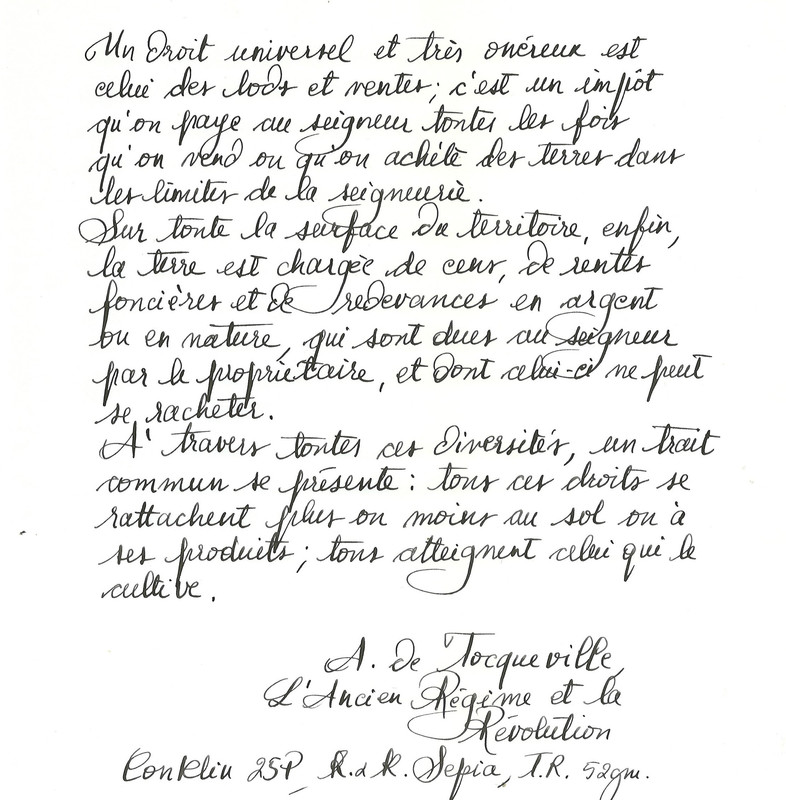 Un droit universel et très onéreux est
celui des lods et ventes; c'est un impôt
qu'on paye au seigneur toutes les fois
qu'on vend ou qu'on achète des terres dans
les limites de la seigneurie.
Sur toute la surface du territoire, enfin,
la terre est chargée de cens, de rentes
foncières et de redevances en argent
ou en nature, qui sont dues au seigneur
par le propriétaire, et dont celui-ci ne peut
se racheter.
A' travers toutes ces diversités, un trait
commun se présente : tous ces droits se
rattachent plus ou moins au sol ou à
ses produits; tous atteignent celui qui le
cultive.
A. de Tocqueville,
L'Ancien Régime et la
Révolution
Conklin 25P, R. & K. Sepia, T.R. 52gm.